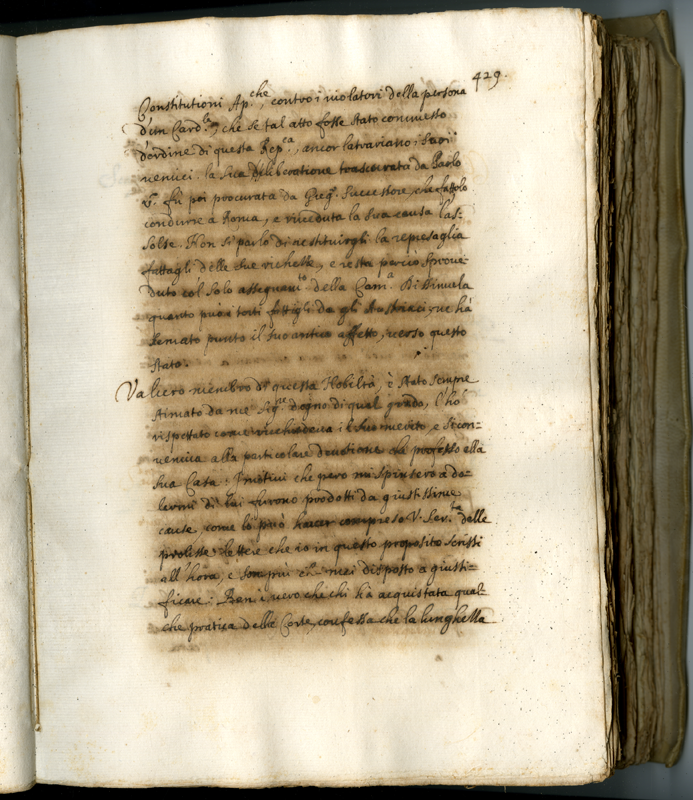 429.
Constitutioni Ap.che, contro i violatori della persona
d'un Card.le, che se tal atto fosse stato commesso
d'ordine di questa Rep.ca, ancor latrariano i Suoi
nemici. la sua deliberatione trascurata da Paolo
V. fù poi procurata da Greg.o Successore, che fattolo
condurre a Roma, e riveduta la sua causa l'as-
solse. Non si parlò di restituirgli la represaglia
fattagli delle sue richezze, e resta perciò sprove-
duto col solo assegnam.to della Cam.a Dissimula
quanto può i torti fattigli da gli Austriaci, ne hà
scemato punto il suo antico affetto, verso questo
stato.
Valiero membro di questa Nobiltà, è stato sempre
stimato da me Sig.re dogno di qual grado, l'hò
rispettato come richiedeva il suo merito, e si con-
veniva alla particolare devotione che professo alla
sua Casa. I motivi che però mi spinsero a do-
lermi di lui furono prodotti da giustissime
cause, come lo può haver compreso V. Ser.tà dalle
prolisse lettere che io in questo proposito scrissi
all'hora, e son più che mai disposto a giusti-
ficare. Ben è vero che chi hà acquistata qual-
che pratica delle Corte, confessa che la lunghezza